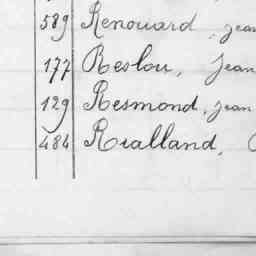 589 Renouard, Jean
177 Reslou, Jean
129 Resmond, Jean
484 Rialland,